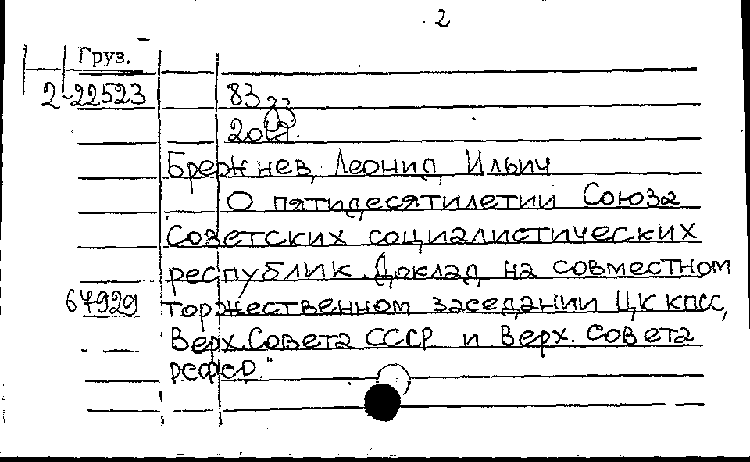 2
Груз.
2-22523 83
23
Брежнев, Леонид Ильич
О пятидесятилетии Союза
Советских социалистических
республик. Доклад на совместном
67929 торжественном заседании ЦК КПСС,
Верх. Совета СССР и Верх. Совета
РСФСР."